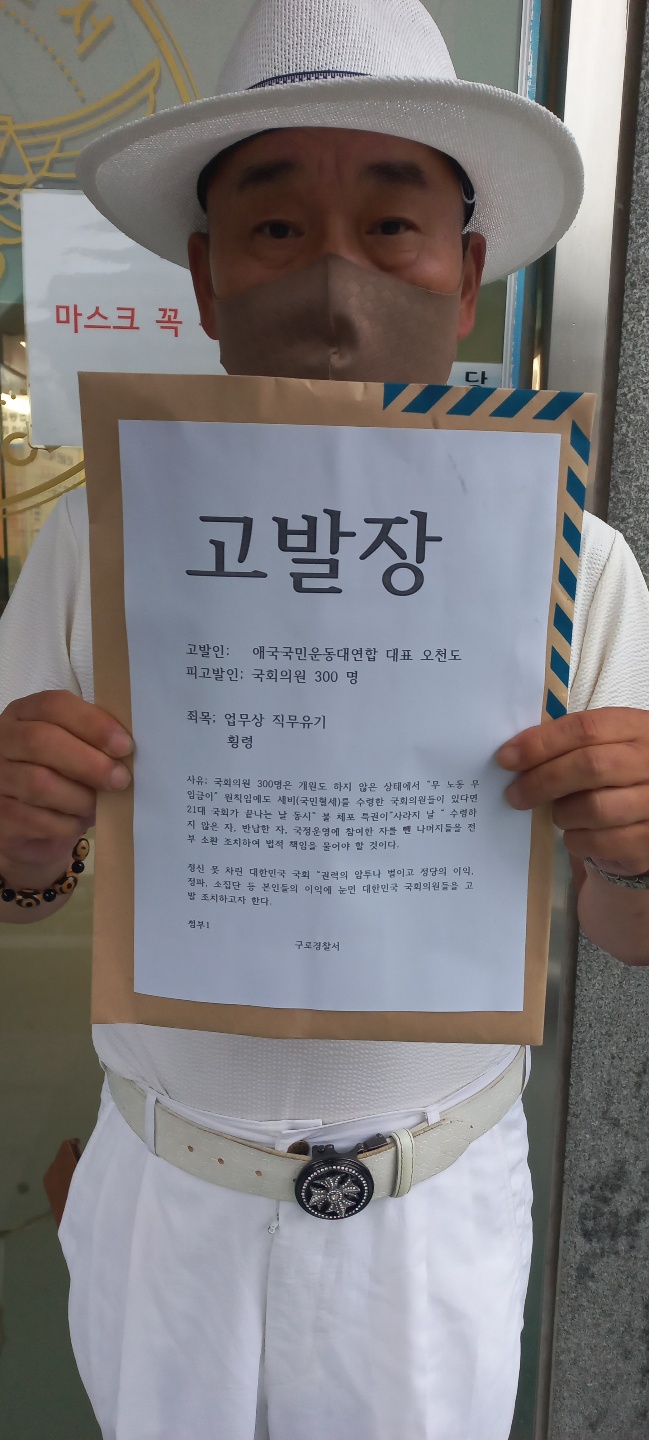 서
마스크 꼭
당
고발장
고발인: 애국국민운동대연합 대표 오천도
피고발인; 국회의원 300 명
죄목; 업무상 직무유기
횡령
사유; 국회의원 300명은 개원도 하지 않은 상태에서 "무 노동 무
임금이" 원칙임에도 세비(국민혈세)를 수령한 국회의원들이 있다면
21대 국회가 끝나는 날 동시" 불 체포 특권이"사라지 날 " 수령하
지 않은 자, 반납한 자, 국정운영에 참여한 자를 뺀 나머지들을 전
부 소환 조치하여 법적 책임을 물어야 할 것이다.
정신 못 차린 대한민국 국회 "권력의 암투나 벌이고 정당의 이익,
정파, 소집단 등 본인들의 이익에 눈먼 대한민국 국회의원들을 고
발 조치하고자 한다.
첨부1
구로경찰서